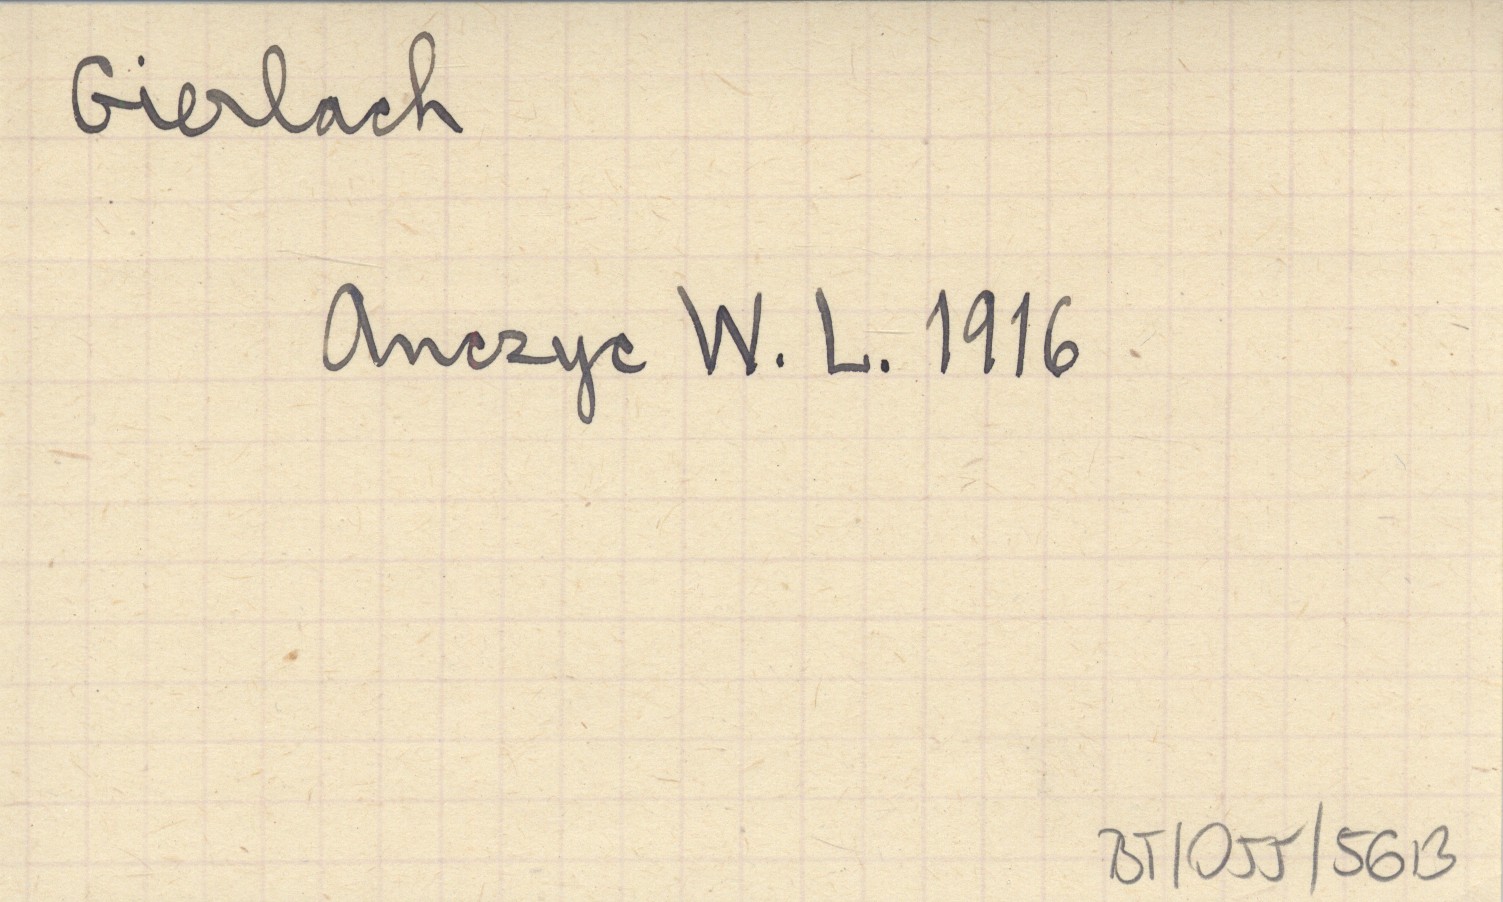 Gierlach
Anczyc W. L. 1916
BT/OJJ/56B